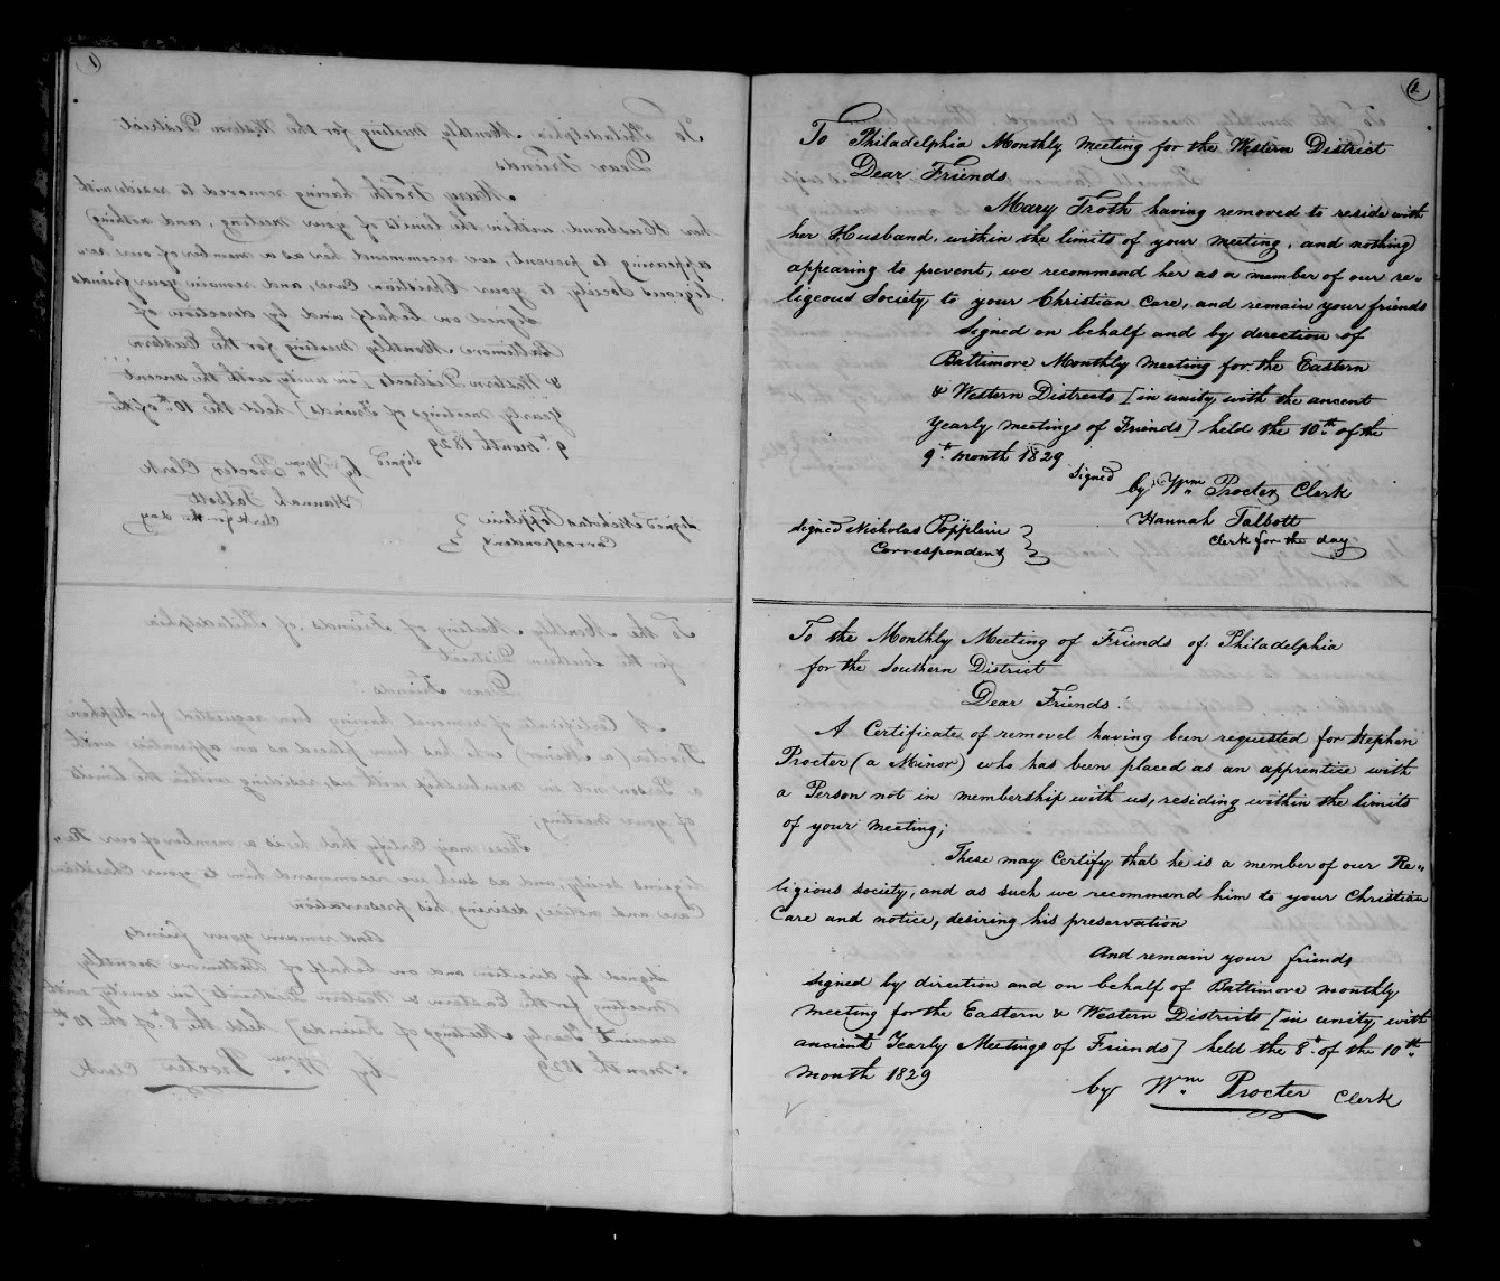 To Philadelphia Monthly Meeting for the Western District
Dear Friends
Mary Troth having removed to reside with
her Husband, within the limits of your meeting, and nothing
appearing to prevent, we recommend her as a member of our re-
ligeous Society, to your Christian Care, and remain your friends
Signed on behalf and by direction of
Baltimore Monthly Meeting for the Eastern
& Western Districts [in unity with the ancent
Yearly meetings of Friends] held the 10th of the
9th month 1829
Signed
by Wm Procter Clerk
Hannah Talbott
Clerk for the day
Signed Nicholas Popplein
Correspondent
To the Monthly Meeting of Friends of Philadelphia
for the Southern District
Dear Friends
A Certificate of removel having been requested for Stephen
Procter (a Minor) who has been placed as an apprentice with
a Person not in membership with us, residing within the limits
of your meeting;
These may Certify that he is a member of our Re-
ligious society, and as such we recommend him to your Christian
Care and notice, desiring his preservation
And remain your friends
Signed by direction and on behalf of Baltimore monthly
meeting for the Eastern & Western Districts [in unity with
ancient Yearly Meetings of Friends] held the 8th of the 10th
month 1829
by Wm Procter Clerk